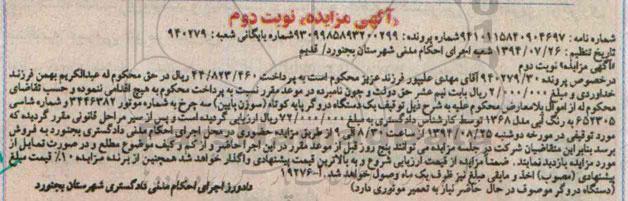 «آگهی مزایده» نوبت دوم
شماره نامه: ۹۴۱۰۹۱۱۵۸۴۰۹۰۴۶۹۷ شماره پرونده: ۹۳۰۹۹۸۵۸۹۳۲۰۰۲۹۹ شماره بایگانی شعبه: ۹۴۰۲۷۹
تاریخ تنظیم: ۱۳۹۴/۰۷/۲۶ شعبه اجرای احکام مدنی شهرستان بجنورد/ قدیم
«آگهی مزایده» نوبت دوم
درخصوص پرونده ۹۴۰۲۷۹/۳۰ آقای مهدی علیپور فرزند عزیز محکوم است به پرداخت ۴۴/۸۲۳/۴۶۰ ریال در حق محکوم له عبدالکریم بهمن فرزند
خداوردی و مبلغ ۲/۰۰۰/۰۰۰ ریال بابت نیم عشر حق دولت و چون نامبرده در موعد مقرر نسبت به پرداخت محکوم به هیچ اقدامی ننموده و حسب تقاضای
محکوم له از اموال بلامعارض محکوم علیه به شرح ذیل توقیف یک دستگاه دروگر پایه کوتاه (سوزن پایین) سه چرخ به شماره موتور ۳۴۴۶۳۸۲ و شماره شاسی
۶۵۲۳۰۵ به رنگ آبی مدل ۱۳۶۸ توسط کارشناس دادگستری به مبلغ ۷۲/۰۰۰/۰۰۰ ریال ارزیابی گردیده است و پس از سیر مراحل قانونی مقرر گردیده که
مورد توقیفی در مورخه دوشنبه ۱۳۹۴/۰۸/۲۵ از ساعت ۸/۳۰ الی ۹ از طریق مزایده حضوری در محل اجرای احکام مدنی دادگستری بجنورد به فروش
برسد بنابراین متقاضیان شرکت در جلسه مزایده می توانند پنج روز قبل از موعد مقرر در این اجرا حاضر و از کم و کیف موضوع مطلع و در صورت تمایل از
مورد مزایده بازدید نمایند. ضمناً مزایده از قیمت ارزیابی شروع و به بالاترین قیمت پیشنهادی واگذار خواهد شد همچنین از برنده مزایده ۱۰٪ قیمت مبلغ
پیشنهادی (مصوب) اخذ و مابقی مبلغ نیز ظرف یک ماه وصول خواهد شد. آ-۱۹۲۷۶
(دستگاه دروگر موصوف در حال حاضر نیاز به تعمیر موتوری دارد)
دادورز اجرای احکام مدنی دادگستری شهرستان بجنورد